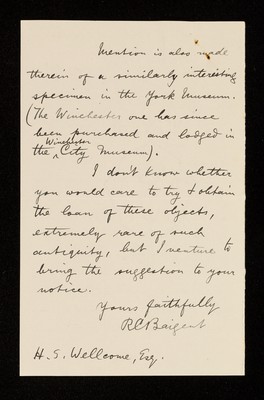 Mention is also made
therein of a similarly interesting
specimen in the York Museum.
(The Winchester one has since
been purchased and lodged in
the Winchester City Museum).
I don't know whether
you would care to try & obtain
the loan of these objects,
extremely rare of such
antiquity, but I venture to
bring the suggestion to your
notice.
Yours faithfully
R C Baigent
H. S. Wellcome, Esq.